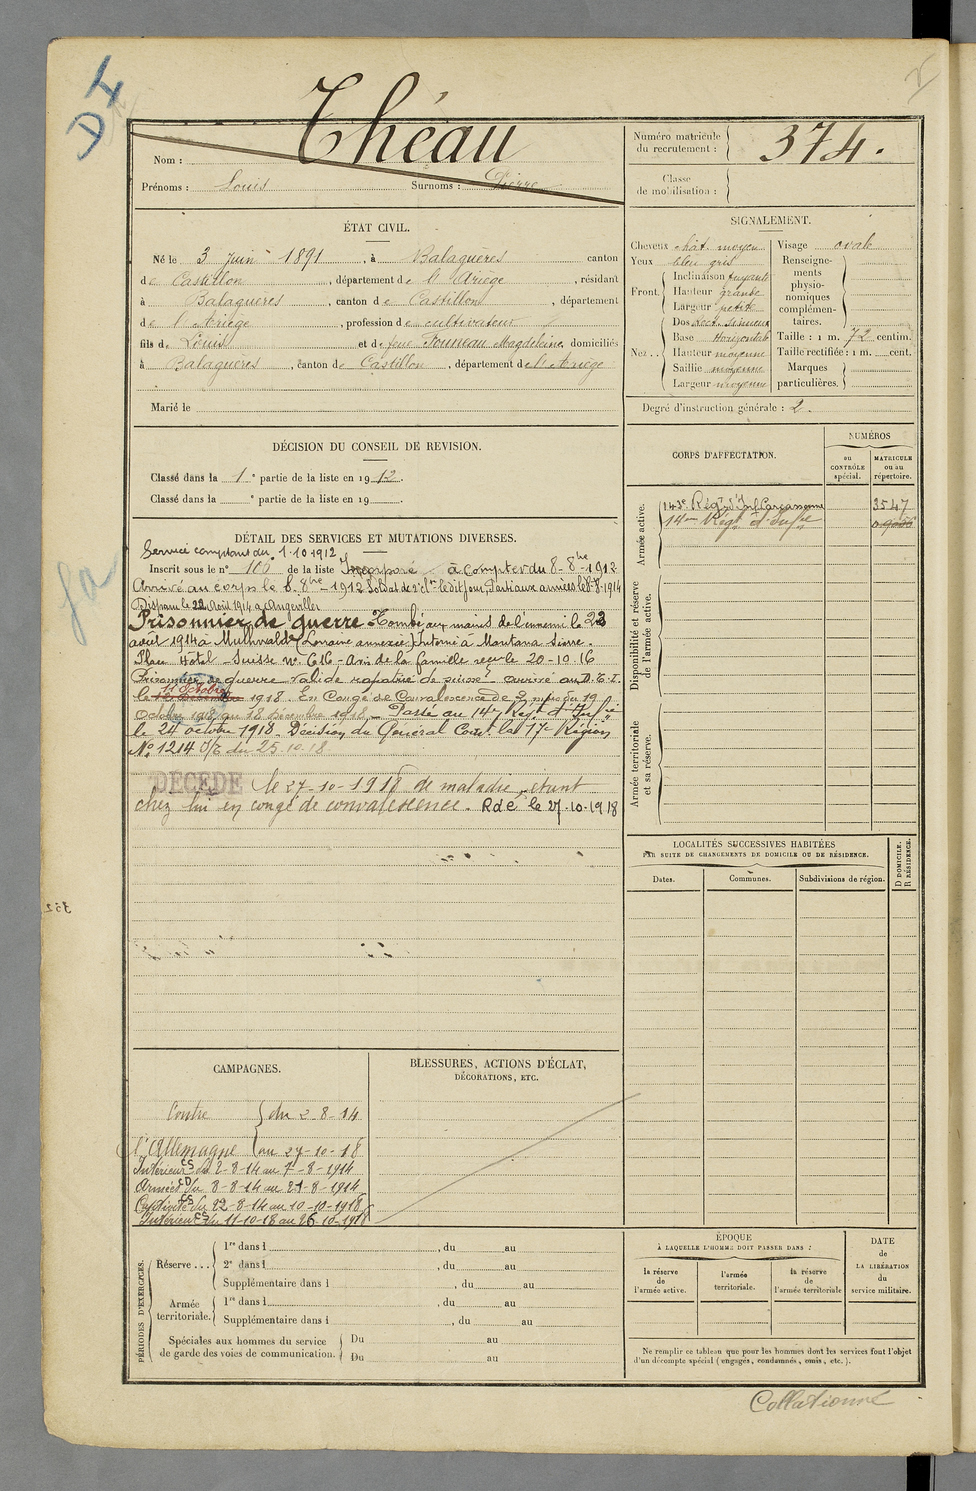 D 4
Nom : Théau
Prénoms : Louis Surnoms : Pierre
Numéro matricule du recrutement : 374.
Classe de mobilisation :
ÉTAT CIVIL.
Né le 3 juin 1891, à Balaguères canton
de Castillon, département de l'Ariège, résidant
à Balaguères, canton de Castillon, département
de l'Ariège, profession de cultivateur
fils de Louis et de feue Magdeleine, domiciliés
à Balaguères, canton de Castillon, département de l'Ariège
Marié le
SIGNALEMENT.
Cheveux chât. moyen Visage ovale
Yeux bleu gris
Front. Inclinaison fuyante
Hauteur grande
Largeur petite
Nez... Dos rect. sinueux
Base horizontale
Hauteur moyenne
Saillie moyenne
Largeur moyenne
Renseignements physionomiques complémentaires.
Taille : 1 m. 72 centim.
Taille rectifiée : 1 m. cent.
Marques particulières.
Degré d'instruction générale : 2.
DÉCISION DU CONSEIL DE REVISION.
Classé dans la 1e partie de la liste en 1912.
Classé dans la e partie de la liste en 19 .
CORPS D'AFFECTATION.
NUMÉROS
au CONTRÔLE spécial.
MATRICULE ou au répertoire.
Armée active.
143e Régt d'Inf Carcassonne 3547
14me Régt d'Infie
Disponibilité et réserve de l'armée active.
Armée territoriale et sa réserve.
DÉTAIL DES SERVICES ET MUTATIONS DIVERSES.
Service comptant du 1.10.1912
Inscrit sous le n° 106 de la liste Incorporé à compter du 8-8bre-1912
Arrivé au corps le 8-8bre-1912 Soldat de 2e cl. le dit jour, Parti aux armées le 8-8-1914
Disparu le 22 Août 1914 à Angeviller
Prisonnier de guerre Tombé aux mains de l'ennemi le 22
août 1914 à Muhwald (Lorraine annexée) Interné à Montana Sierre.
Place Hôtel Suisse n° C16 - Avis de la famille reçu le 20-10-16
Prisonnier de guerre valide rapatrié de Suisse arrivé au D.C.I.
le 11 octobre 1918. En Congé de Convalescence de 2 mois du 19
Octobre 1918 au 18 Décembre 1918 - Passé au 14e Régt d'Infie
le 24 octobre 1918. Décision du Général Comt la 17e Région
N° 1214 du 25.10.18
DÉCÉDÉ le 27-10-1918 de maladie, étant
chez lui en congé de convalescence. Rdé le 27.10.1918
LOCALITÉS SUCCESSIVES HABITÉES
PAR SUITE DE CHANGEMENTS DE DOMICILE OU DE RÉSIDENCE.
Dates. Communes. Subdivisions de région. D DOMICILE. R RÉSIDENCE.
CAMPAGNES.
Contre du 2-8-14
l'Allemagne au 27-10-18
Intérieur CS du 2-8-14 au 7-8-1914
Armées CD du 8-8-14 au 21-8-1914
Captivité CS du 22-8-14 au 10-10-1918
Intérieur CS du 11-10-18 au 26-10-1918
BLESSURES, ACTIONS D'ÉCLAT,
DÉCORATIONS, ETC.
PÉRIODES D'EXERCICES.
Réserve... 1re dans l , du au
2e dans l , du au
Supplémentaire dans l , du au
Armée territoriale. 1re dans l , du au
Supplémentaire dans l , du au
Spéciales aux hommes du service de garde des voies de communication. Du au
Du au
ÉPOQUE
À LAQUELLE L'HOMME DOIT PASSER DANS :
la réserve de l'armée active. l'armée territoriale. la réserve de l'armée territoriale
DATE de LA LIBÉRATION du service militaire.
Ne remplir ce tableau que pour les hommes dont les services font l'objet
d'un décompte spécial (engagés, condamnés, omis, etc.).
Collationné